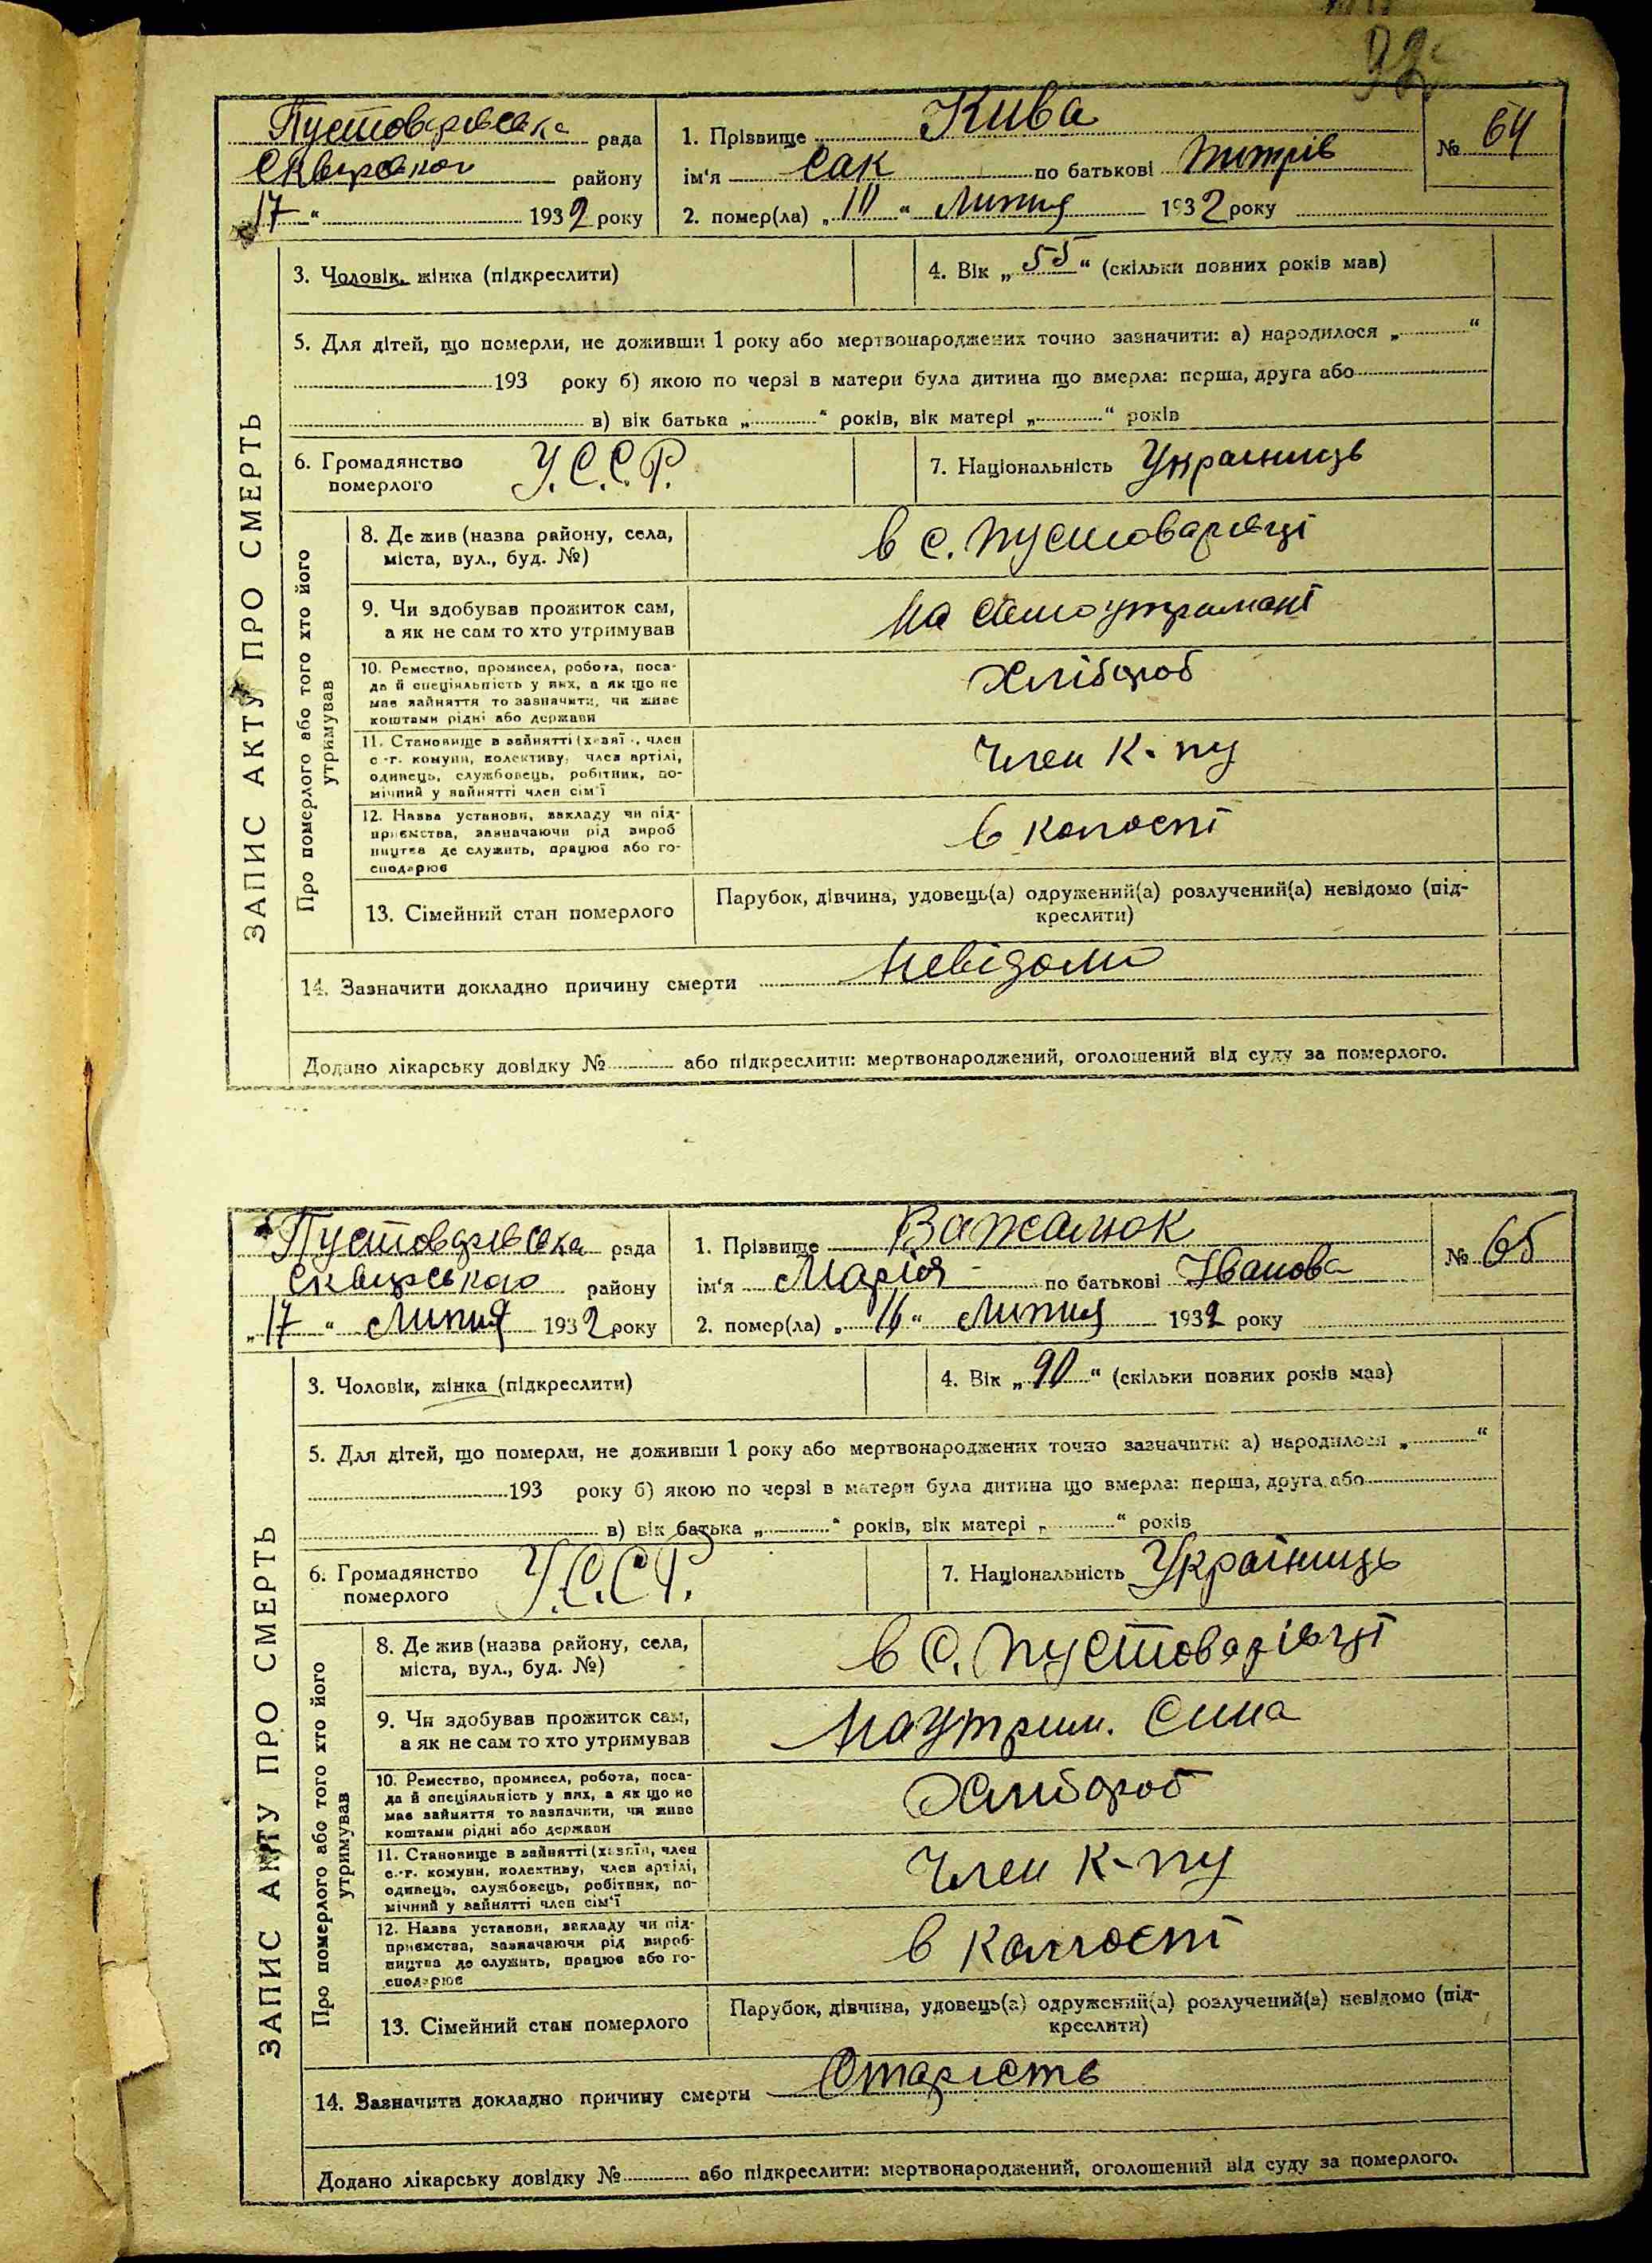 92
Пустоварівська рада
Сквирсоког району
17 “ 1932 року
1. Прізвище Кива
ім‘я Сак по батькові Титрів
№ 64
2. помер(ла) „ 10 “ Липня 1932 року
ЗАПИС АКТУ ПРО СМЕРТЬ
3. Чоловік, жінка (підкреслити)
4. Вік „ 55 “ (скільки повних років мав)
5. Для дітей, що померли, не доживши 1 року або мертвонароджених точно зазначити: а) народилося „ “
193 року б) якою по черзі в матери була дитина що вмерла: перша, друга або
в) вік батька „ “ років, вік матері „ “ років
6. Громадянство померлого У.С.С.Р.
7. Національність Українищь
Про померлого або того хто його утримував
8. Де жив (назва району, села,
міста, вул., буд. №)
в с. Пустоварівці
9. Чи здобував прожиток сам,
а як не сам то хто утримував
На самоутримані
10. Ремество, промисел, робота, поса-
да й спеціяльність у них, а як що не
має зайняття то зазначити, чи живе
коштами рідні або держави
Хлібороб
11. Становище в зайнятті (хазяїн, член
с.-г. комуни, колективу, член артілі,
одинець, службовець, робітник, по-
мічний у зайнятті член сім‘ї
Член К-пу
12. Назва установи, закладу чи під-
приємства, зазначаючи рід вироб
ництва де служить, працює або го-
сподарює
в колгоспі
13. Сімейний стан померлого
Парубок, дівчина, удовець(а) одружений(а) розлучений(а) невідомо (під-
креслити)
14. Зазначити докладно причину смерти Невідомо
Додано лікарську довідку № або підкреслити: мертвонароджений, оголошений від суду за померлого.
Пустоварівська рада
Сквирського району
„ 17 “ Липня 1932 року
1. Прізвище Важалюк
ім‘я Марія по батькові Іванова
№ 65
2. помер(ла) „ 16 “ Липня 1932 року
ЗАПИС АКТУ ПРО СМЕРТЬ
3. Чоловік, жінка (підкреслити)
4. Вік „ 90 “ (скільки повних років мав)
5. Для дітей, що померли, не доживши 1 року або мертвонароджених точно зазначити: а) народилося „ “
193 року б) якою по черзі в матери була дитина що вмерла: перша, друга або
в) вік батька „ “ років, вік матері „ “ років
6. Громадянство померлого У.С.С.Р.
7. Національність Українищь
Про померлого або того хто його утримував
8. Де жив (назва району, села,
міста, вул., буд. №)
в с. Пустоварівці
9. Чи здобував прожиток сам,
а як не сам то хто утримував
На утрим. Сина
10. Ремество, промисел, робота, поса-
да й спеціяльність у них, а як що не
має зайняття то зазначити, чи живе
коштами рідні або держави
Хлибороб
11. Становище в зайнятті (хазяїн, член
с.-г. комуни, колективу, член артілі,
одинець, службовець, робітник, по-
мічний у зайнятті член сім‘ї
Член К-пу
12. Назва установи, закладу чи під-
приємства, зазначаючи рід вироб-
ництва де служить, працює або го-
сподарює
в колгоспі
13. Сімейний стан померлого
Парубок, дівчина, удовець(а) одружений(а) розлучений(а) невідомо (під-
креслити)
14. Зазначити докладно причину смерти Старість
Додано лікарську довідку № або підкреслити: мертвонароджений, оголошений від суду за померлого.